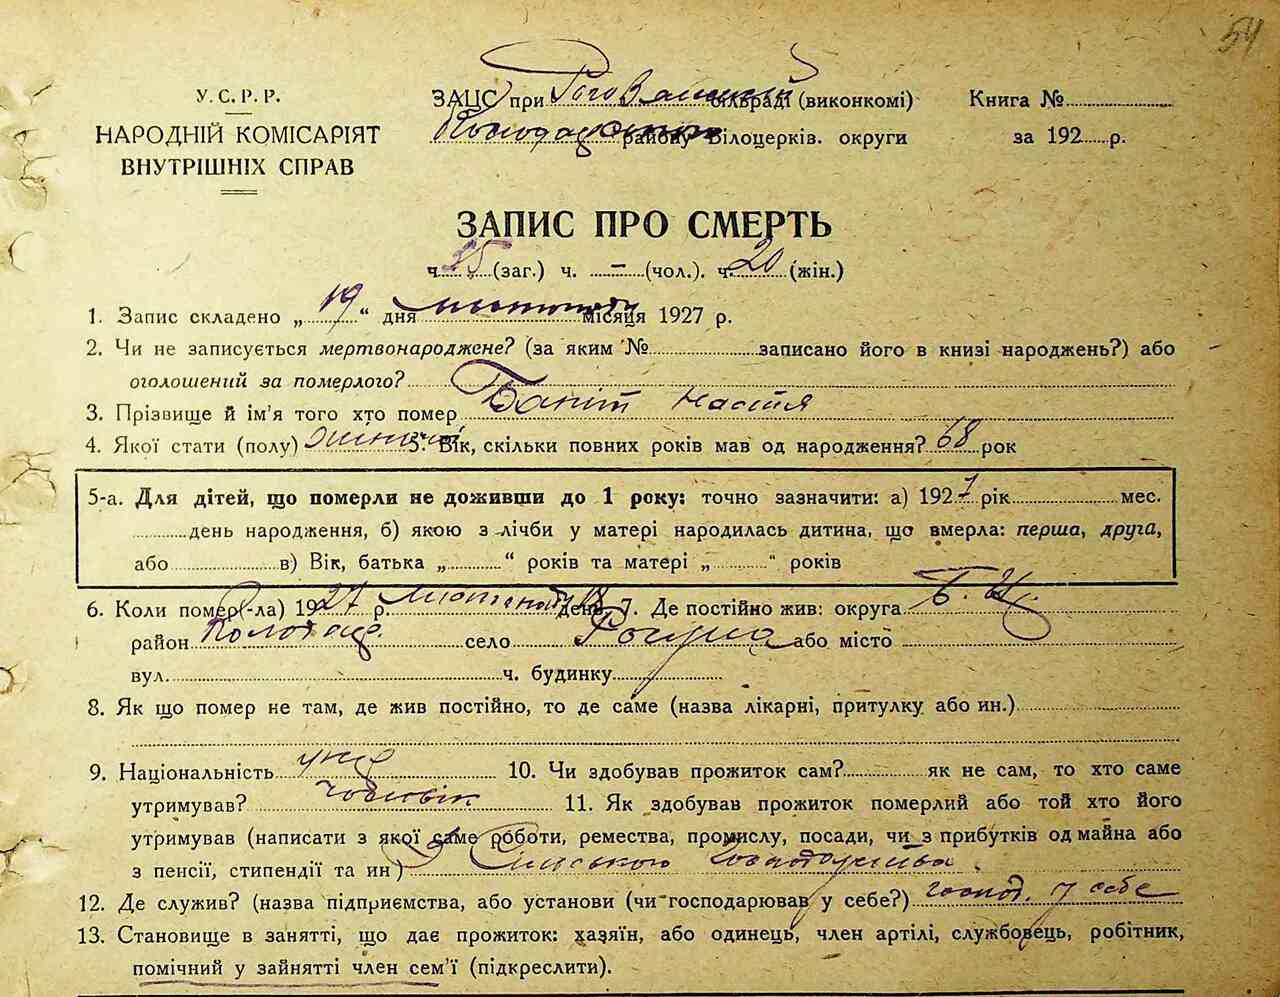 54
У. С. Р. Р.
НАРОДНІЙ КОМІСАРІЯТ
ВНУТРІШНІХ СПРАВ
ЗАЦС при сільраді (виконкомі)
району Білоцерків. округи
Книга №
за 192 р.
ЗАПИС ПРО СМЕРТЬ
ч. 25 (заг.) ч. – (чол.). ч. 20 (жін.)
1. Запис складено „ 19 “ дня листопаду місяця 1927 р.
2. Чи не записується мертвонароджене? (за яким № записано його в книзі народжень?) або
оголошений за померлого?
3. Прізвище й ім'я того хто помер Баніт Настя
4. Якої стати (полу) жіночої 5. Вік, скільки повних років мав од народження? 68 рок
5-а. Для дітей, що померли не доживши до 1 року: точно зазначити: а) 1927 рік мес.
день народження, б) якою з лічби у матері народилась дитина, що вмерла: перша, друга,
або в) Вік, батька „ “ років та матері „ “ років
6. Коли помер(-ла) 1927 р. листопаду 18 день 7. Де постійно жив: округа Б. Ц.
район Володар. село або місто
вул. ч. будинку
8. Як що помер не там, де жив постійно, то де саме (назва лікарні, притулку або ин.)
9. Національність укр 10. Чи здобував прожиток сам? як не сам, то хто саме
утримував? Чоловік 11. Як здобував прожиток померлий або той хто його
утримував (написати з якої саме роботи, ремества, промислу, посади, чи з прибутків од майна або
з пенсії, стипендії та ин) З Сільського господарства
12. Де служив? (назва підприємства, або установи (чи господарював у себе?) господ. у себе
13. Становище в занятті, що дає прожиток: хазяїн, або одинець, член артілі, службовець, робітник,
помічний у зайнятті член сем'ї (підкреслити).